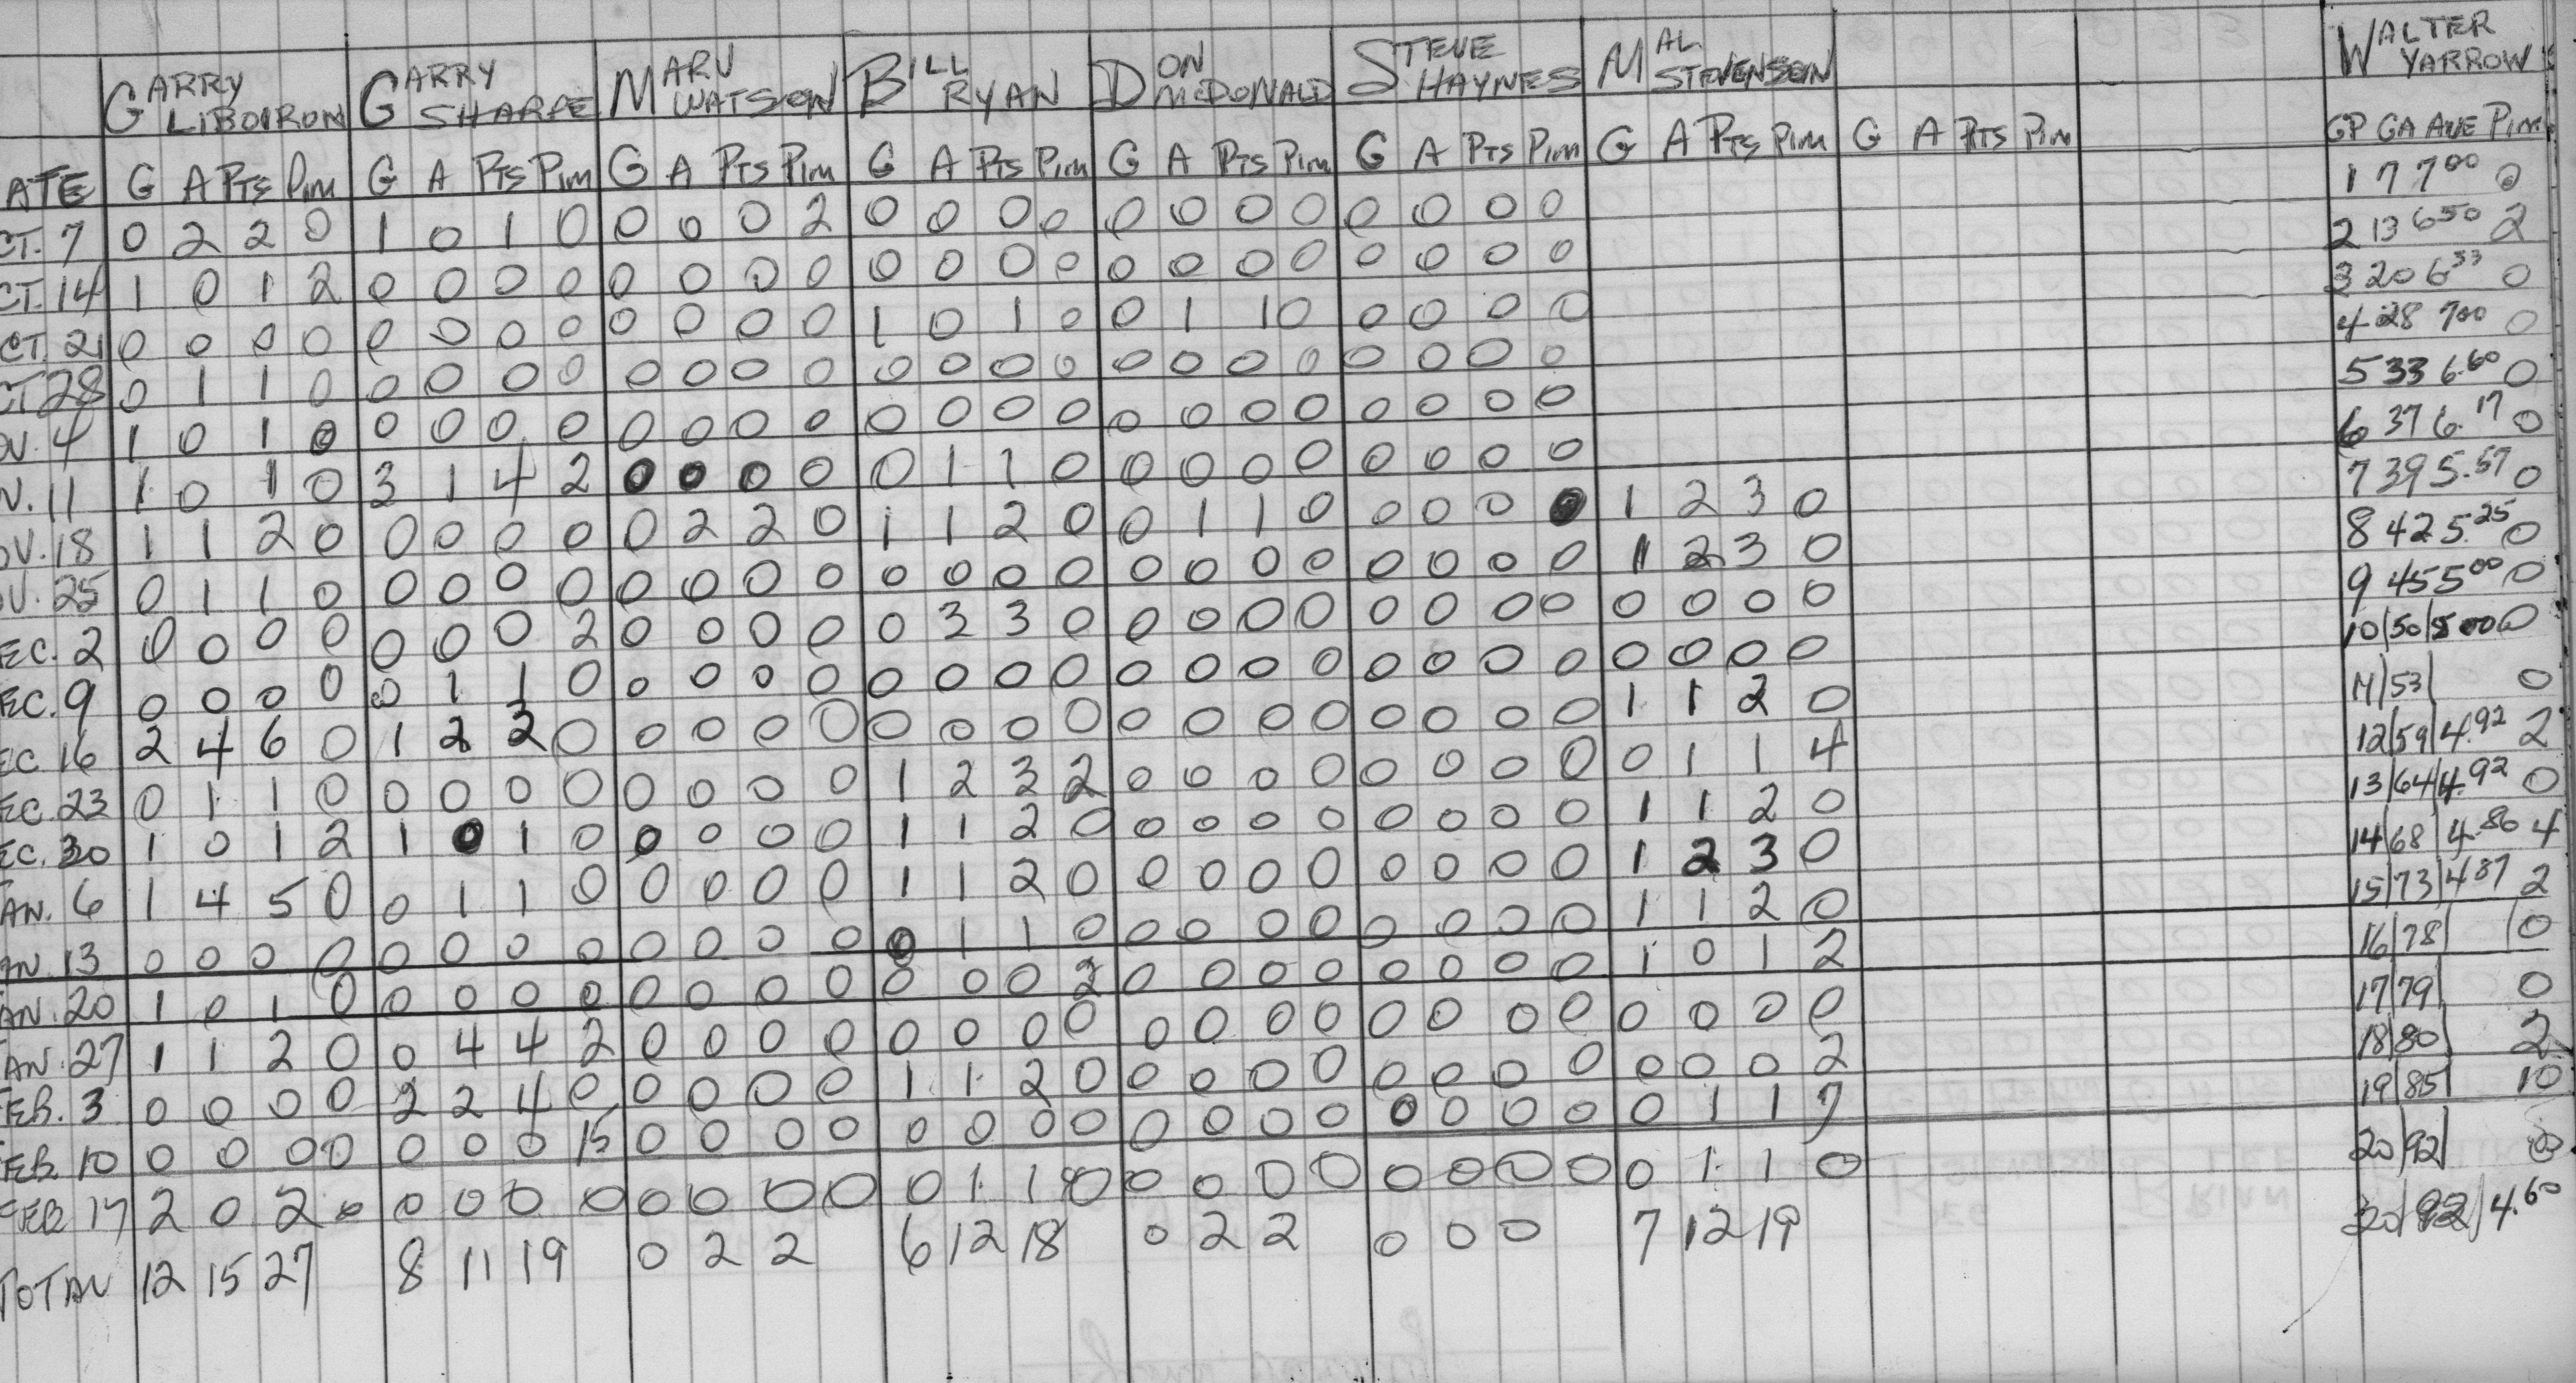 GARRY LIBOIRON GARRY SHARPE MARV WATSON BILL RYAN DON McDONALD STEVE HAYNES MAL STEVENSON WALTER YARROW
ATE G A PTS Pim G A PTS Pim G A PTS Pim G A PTS Pim G A PTS Pim G A PTS Pim G A PTS Pim G A PTS Pim GP GA AVE Pim
CT. 7 0 2 2 0 1 0 1 0 0 0 0 2 0 0 0 0 0 0 0 0 0 0 0 0 1 7 7.00 0
CT. 14 1 0 1 2 0 0 0 0 0 0 0 0 0 0 0 0 0 0 0 0 0 0 0 0 2 13 6.50 2
CT. 21 0 0 0 0 0 0 0 0 0 0 0 0 1 0 1 0 0 1 1 0 0 0 0 0 3 20 6.33 0
CT 28 0 1 1 0 0 0 0 0 0 0 0 0 0 0 0 0 0 0 0 0 0 0 0 0 4 28 7.00 0
OV. 4 1 0 1 0 0 0 0 0 0 0 0 0 0 0 0 0 0 0 0 0 0 0 0 0 5 33 6.60 0
V. 11 1 0 1 0 3 1 4 2 0 0 0 0 0 1 1 0 0 0 0 0 0 0 0 0 6 37 6.17 0
OV. 18 1 1 2 0 0 0 0 0 0 2 2 0 1 1 2 0 0 1 1 0 0 0 0 0 1 2 3 0 7 39 5.57 0
OV. 25 0 1 1 0 0 0 0 0 0 0 0 0 0 0 0 0 0 0 0 0 0 0 0 0 1 2 3 0 8 42 5.25 0
EC. 2 0 0 0 0 0 0 0 2 0 0 0 0 0 3 3 0 0 0 0 0 0 0 0 0 0 0 0 0 9 45 5.00 0
EC. 9 0 0 0 0 0 1 1 0 0 0 0 0 0 0 0 0 0 0 0 0 0 0 0 0 0 0 0 0 10 50 5.00 0
EC 16 2 4 6 0 1 2 3 0 0 0 0 0 0 0 0 0 0 0 0 0 0 0 0 0 1 1 2 0 11 53 0
EC. 23 0 1 1 0 0 0 0 0 0 0 0 0 1 2 3 2 0 0 0 0 0 0 0 0 0 1 1 4 12 59 4.92 2
EC. 30 1 0 1 2 1 0 1 0 0 0 0 0 1 1 2 0 0 0 0 0 0 0 0 0 1 1 2 0 13 64 4.92 0
AN. 6 1 4 5 0 0 1 1 0 0 0 0 0 1 1 2 0 0 0 0 0 0 0 0 0 1 2 3 0 14 68 4.86 4
AN. 13 0 0 0 0 0 0 0 0 0 0 0 0 0 1 1 0 0 0 0 0 0 0 0 0 1 1 2 0 15 73 4.87 2
AN. 20 1 0 1 0 0 0 0 0 0 0 0 0 0 0 0 2 0 0 0 0 0 0 0 0 1 0 1 2 16 78 0
AN. 27 1 1 2 0 0 4 4 2 0 0 0 0 0 0 0 0 0 0 0 0 0 0 0 0 0 0 0 0 17 79 0
EB. 3 0 0 0 0 2 2 4 0 0 0 0 0 1 1 2 0 0 0 0 0 0 0 0 0 0 0 0 2 18 80 2
EB. 10 0 0 0 0 0 0 0 15 0 0 0 0 0 0 0 0 0 0 0 0 0 0 0 0 0 1 1 7 19 85 10
FEB 17 2 0 2 0 0 0 0 0 0 0 0 0 0 1 1 0 0 0 0 0 0 0 0 0 0 1 1 0 20 92 0
TOTAL 12 15 27 8 11 19 0 2 2 6 12 18 0 2 2 0 0 0 7 12 19 20 92 4.60